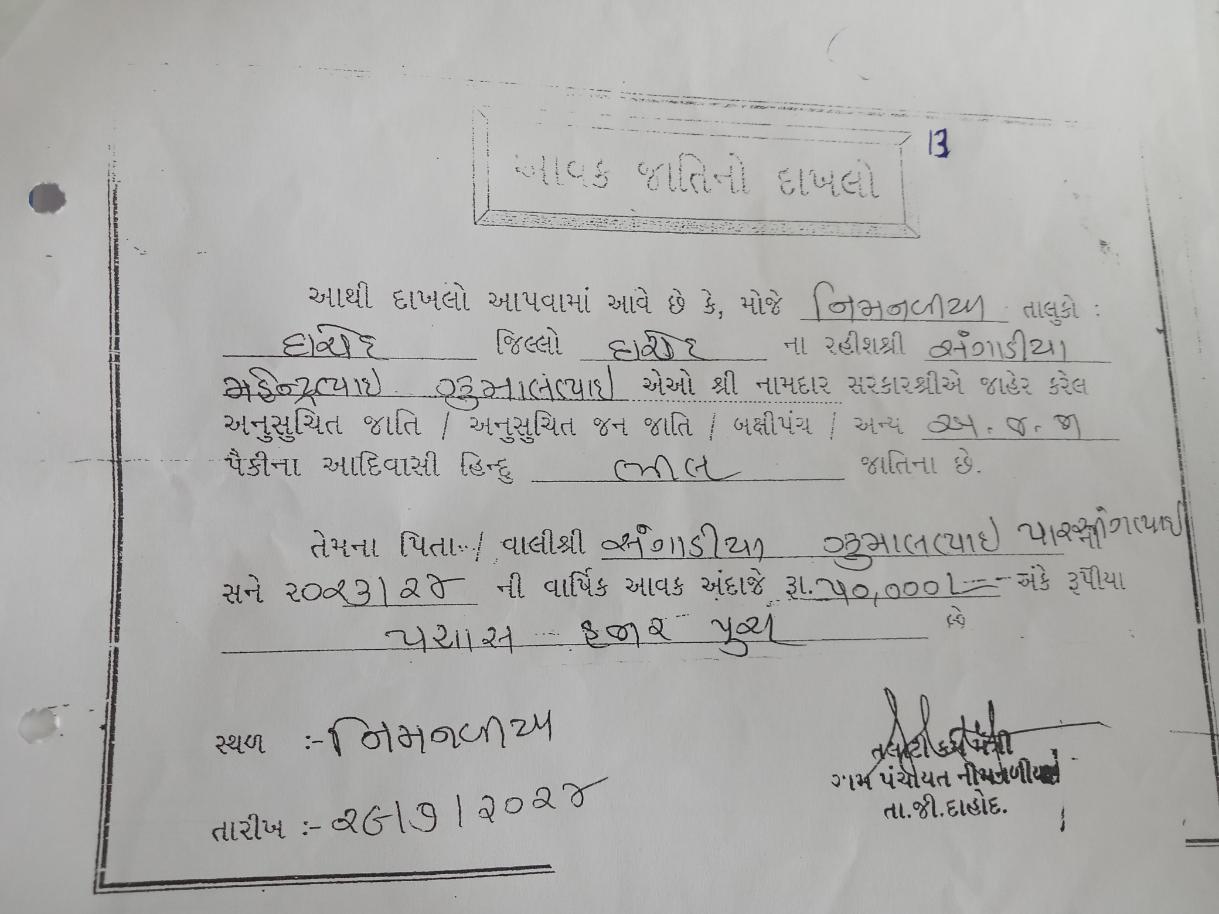 13
આવક જાતિનો દાખલો
આથી દાખલો આપવામાં આવે છે કે, મોજે નિમનળીયા તાલુકો :
દાહોદ જિલ્લો દાહોદ ના રહીશશ્રી સંગાડીયા
મહેન્દ્રભાઇ ઝુમાલભાઇ એઓ શ્રી નામદાર સરકારશ્રીએ જાહેર કરેલ
અનુસુચિત જાતિ / અનુસુચિત જન જાતિ / બક્ષીપંચ / અન્ય અ.જ.જા
પૈકીના આદિવાસી હિન્દુ ભીલ જાતિના છે.
તેમના પિતા / વાલીશ્રી સંગાડીયા ઝુમાલભાઇ
સને ૨૦૨૩/૨૪ ની વાર્ષિક આવક અંદાજે રૂા. ૫૦,૦૦૦/= અંકે રૂપીયા
પચાસ હજાર પુરા છે
સ્થળ :- નિમનળીયા
તારીખ :- ૨૯/૭/૨૦૨૪
તલાટી કમ મંત્રી
ગામ પંચાયત નીમનળીયા
તા.જી.દાહોદ.